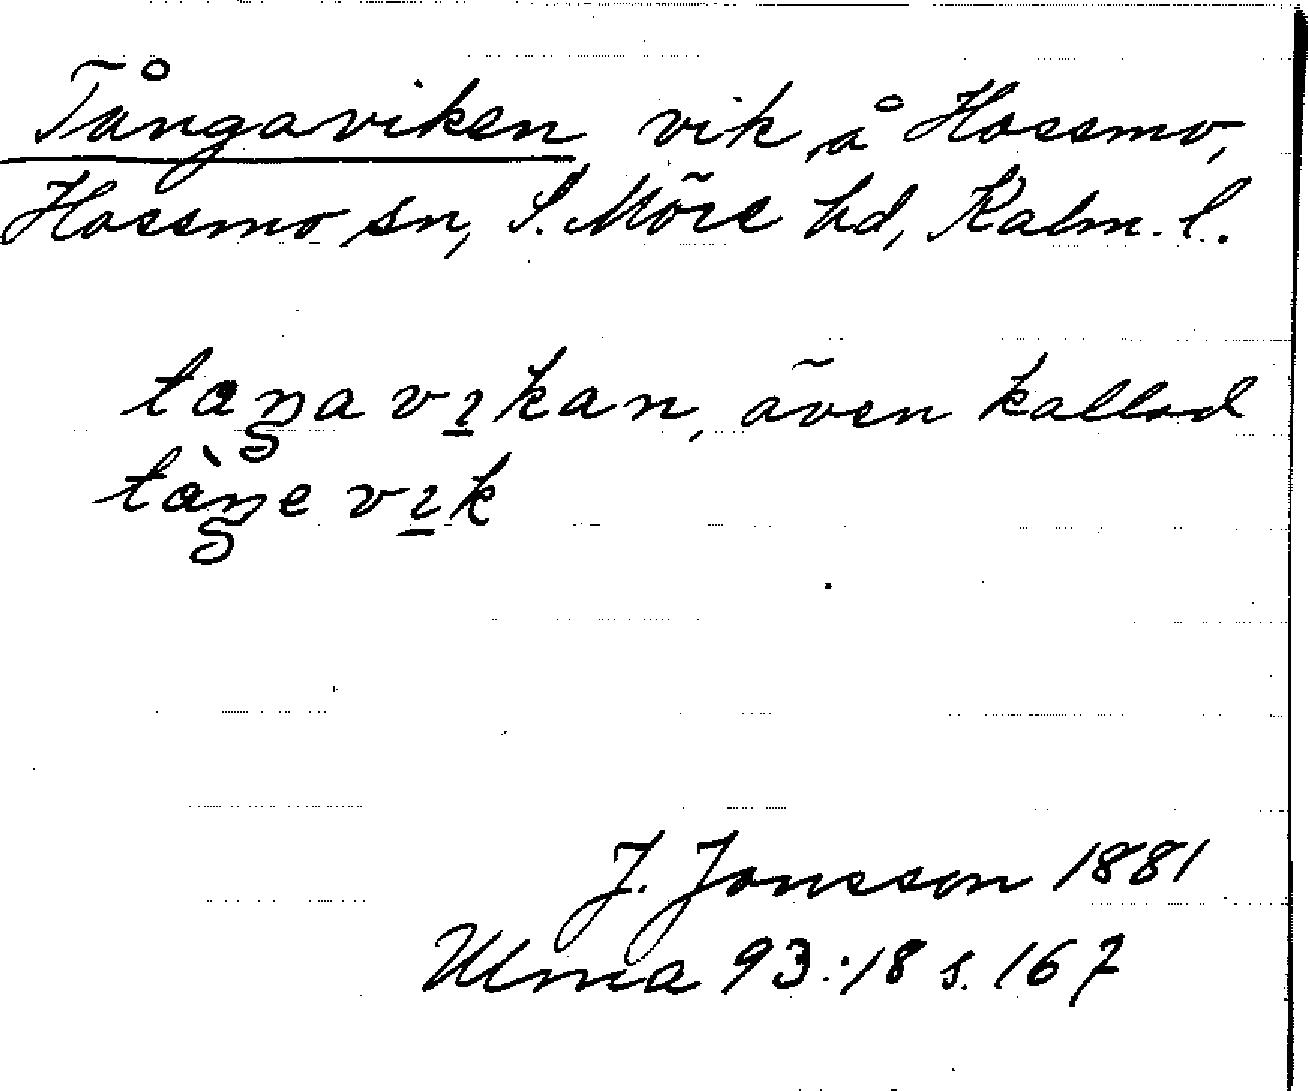 Tångaviken, vik å Hossmo,
Hossmo sn, S. Möre hd, Kalm. l.
taŋa vıkan, även kallad
tàŋe vık
J. Jonsson 1881
Ulma 93:18 s. 167